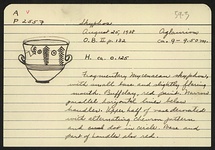 A
P 2557
Skyphos
August 25, 1938
O.B. II p. 132
H. ca. 0.125
Fragmentary Mycenaean skyphos,
with small base and slightly flaring
mouth. Buff clay, red paint. Narrow
parallel horizontal lines below
handles. Upper half of vase decorated
with alternating chevron pattern
and
dot in circle. Base and
part of handles also red.